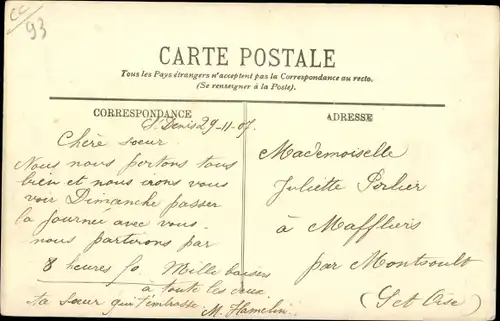 CC
93
CARTE POSTALE
Tous les Pays étrangers n'acceptent pas la Correspondance au recto.
(Se renseigner à la Poste).
CORRESPONDANCE
S. Denis 29-11-07.
Chère soeur
Nous nous portons tous
bien et nous irons vous
voir Dimanche passer
la Journée avec vous.
nous partirons par
8 heures 50. Mille baisers
à toute les deux
ta soeur qui t'embrasse. M. Hamelin.
ADRESSE
Mademoiselle
Juliette Perlier
à Maffliers
par Montsoult
(S et Oise)